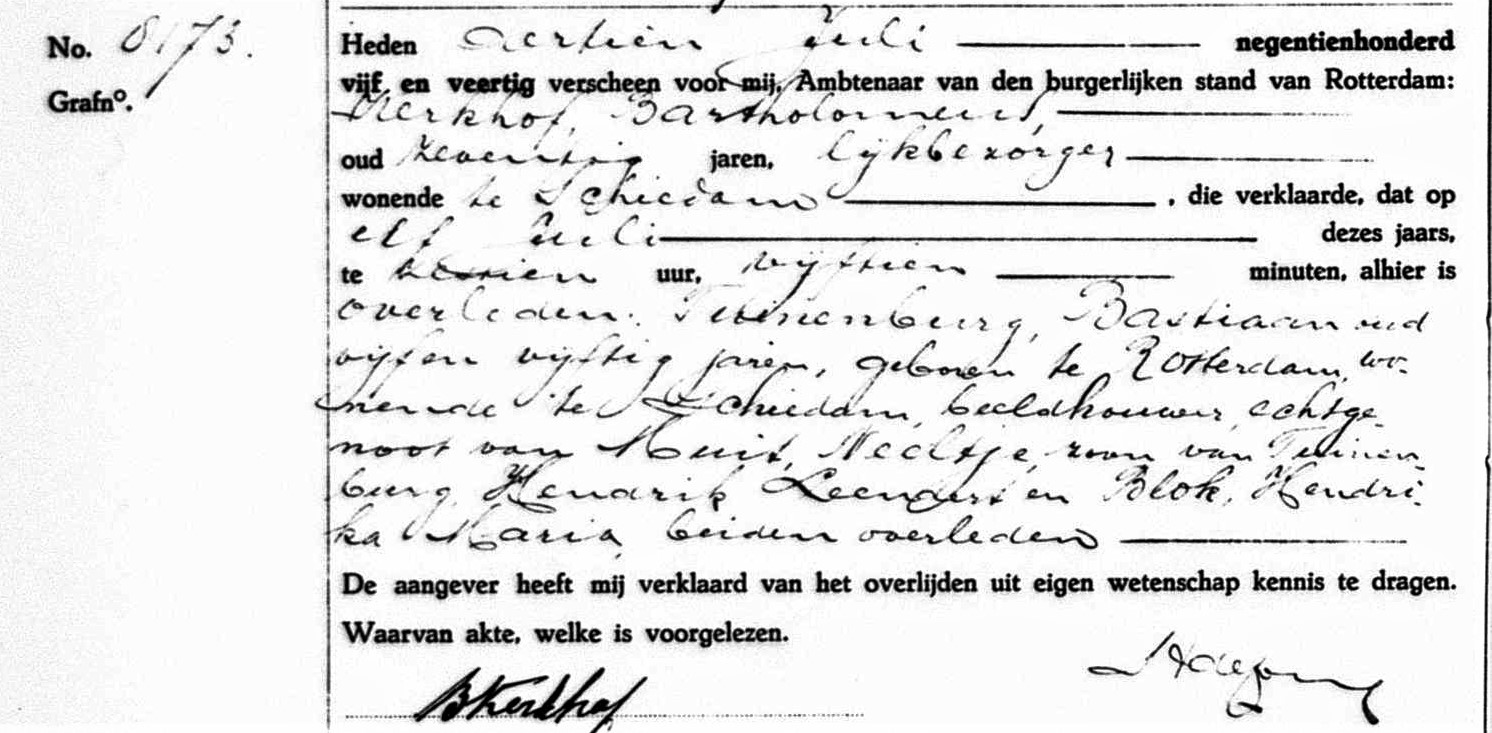 No. 8173.
Grafnº.
Heden dertien Juli negentienhonderd
vijf en veertig verscheen voor mij, Ambtenaar van den burgerlijken stand van Rotterdam:
Kerkhof, Bartholomeus,
oud zeventig jaren, lijkbezorger
wonende te Schiedam, die verklaarde, dat op
elf Juli dezes jaars,
te uur, vijftien minuten, alhier is
overleden: Tuinenburg, Bastiaan oud
vijfen vijftig jaren, geboren te Rotterdam, wo-
nende te Schiedam, beeldhouwer, echtge-
noot van Muit, Neeltje, zoon van Tuinen-
burg, Hendrik Leendert en Blok, Hendri-
ka Maria, beiden overleden
De aangever heeft mij verklaard van het overlijden uit eigen wetenschap kennis te dragen.
Waarvan akte, welke is voorgelezen.
BKerkhof